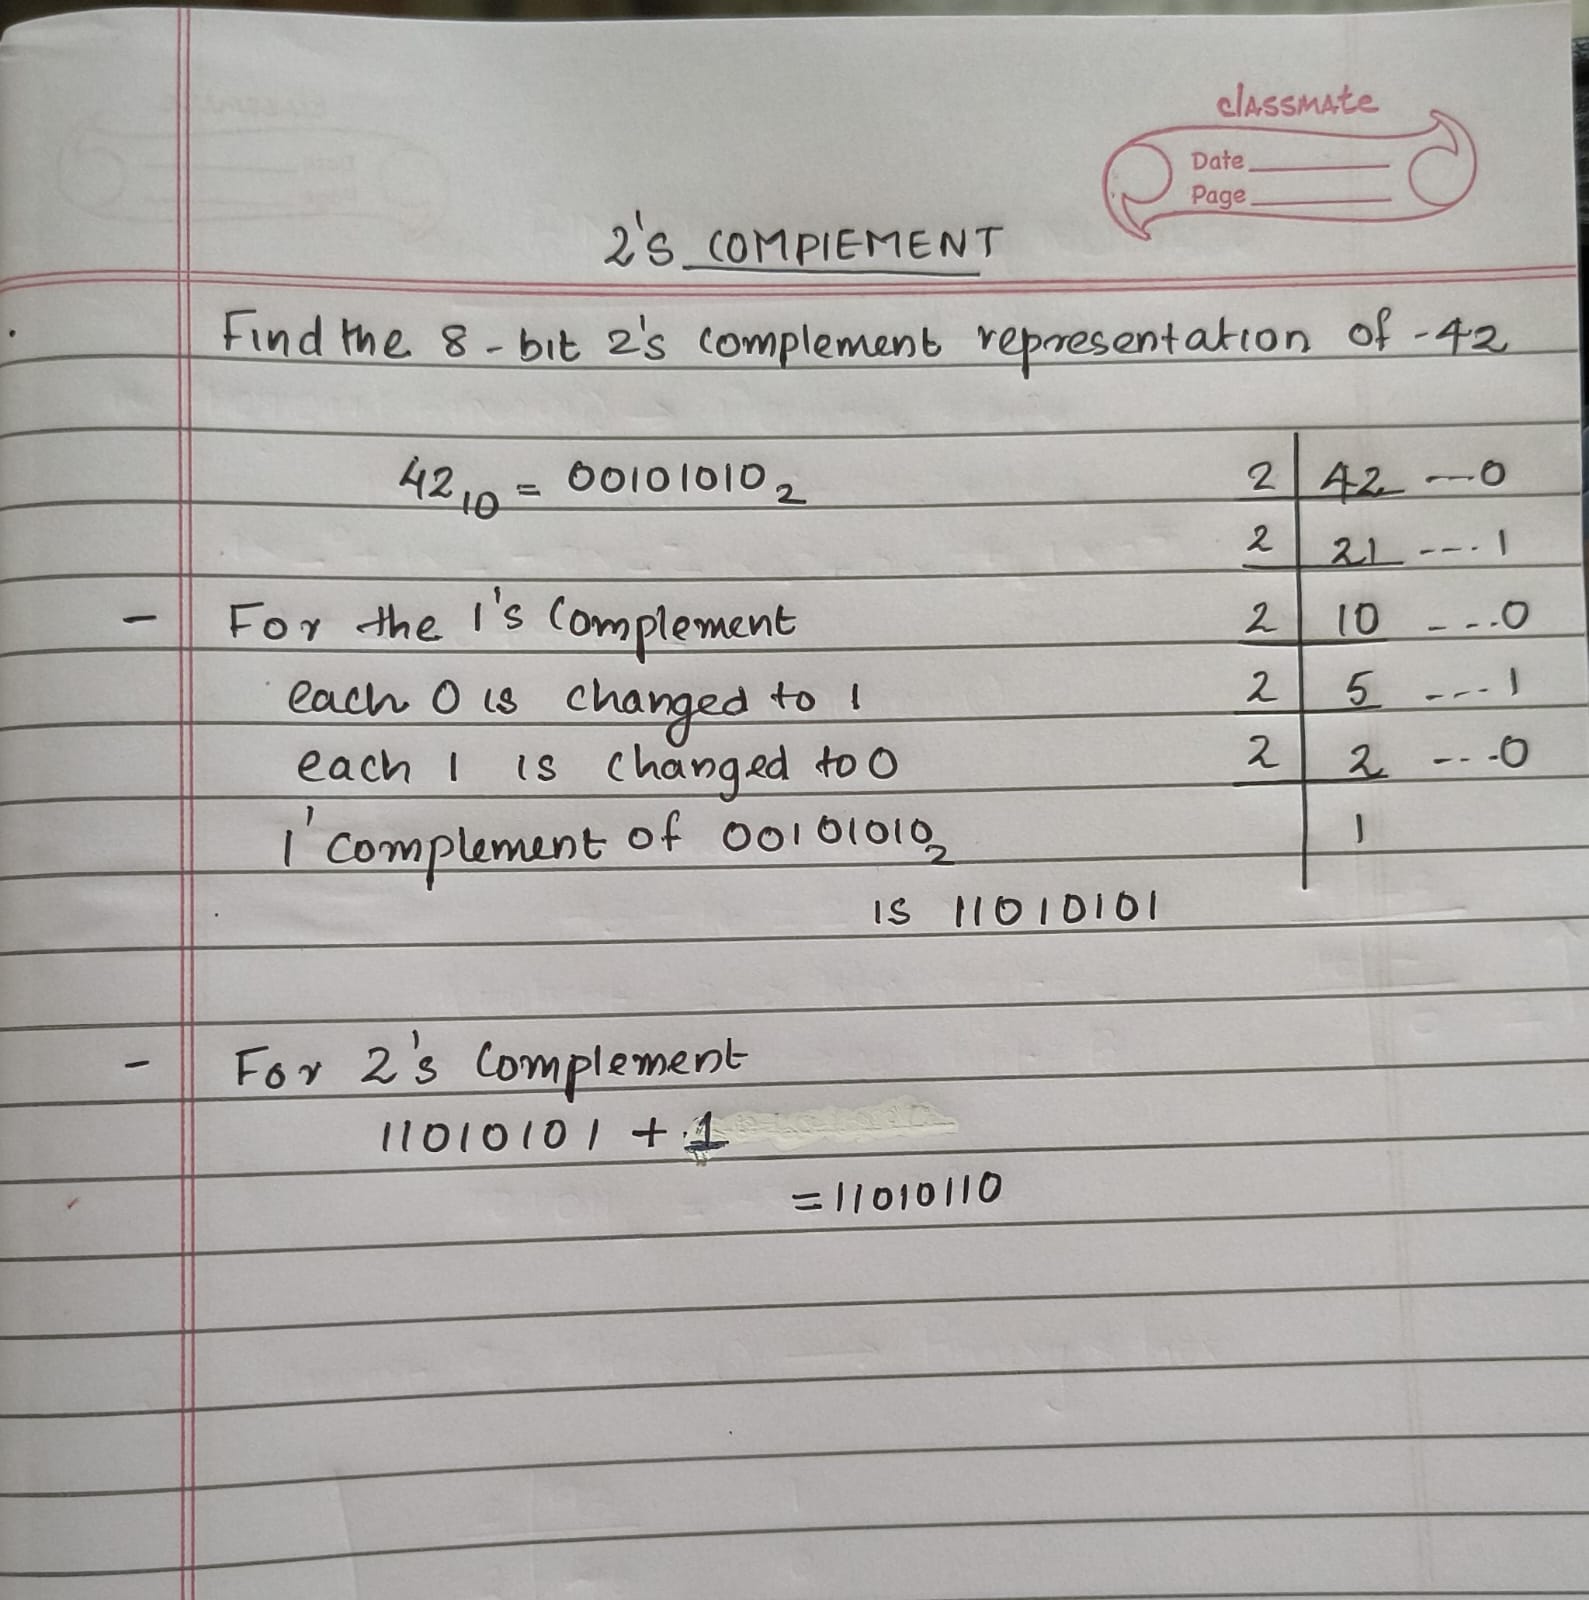 classmate
Date
Page
2's COMPLEMENT
Find the 8-bit 2's complement representation of -42
42₁₀ = 00101010₂
2 | 42 ---0
2 | 21 ---- 1
2 | 10 ---0
2 | 5 ---- 1
2 | 2 ---0
1
- For the 1's complement
each 0 is changed to 1
each 1 is changed to 0
1' complement of 00101010₂
is 11010101
- For 2's complement
11010101 + 1
= 11010110